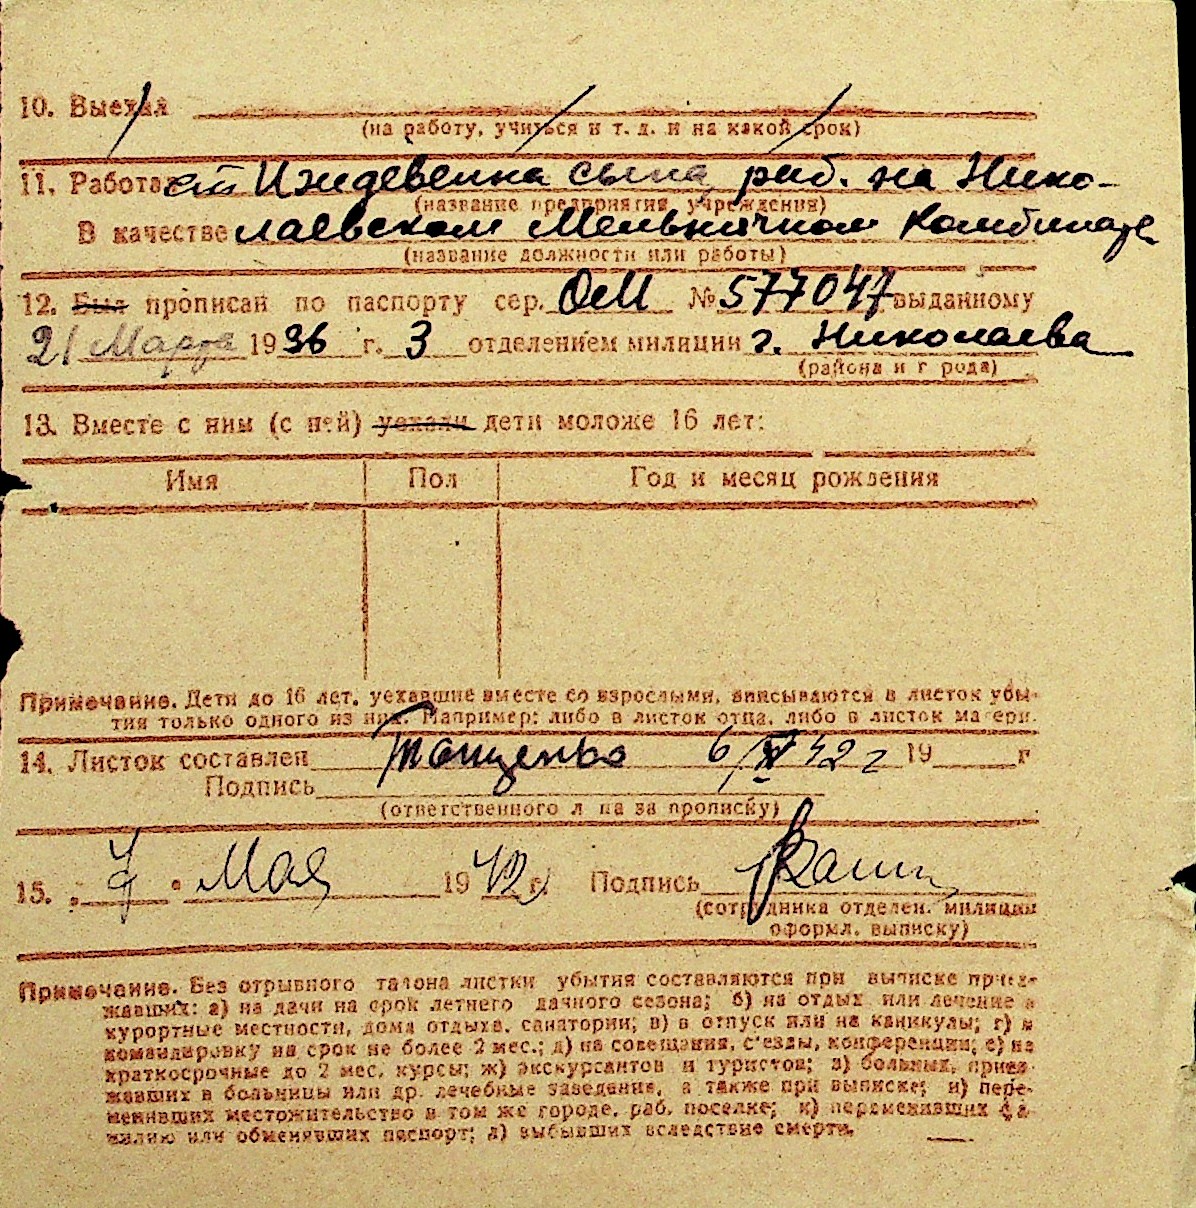 10. Выехал
(на работу, учиться и т. д. и на какой срок)
11. Работа ет Иждевенка сына, раб. на Нико-
(название предприятия, учреждения)
В качестве лаевском Мельничном Комбинате
(название должности или работы)
12. Был прописан по паспорту сер. ОеМ № 577047 выданному
21 Марта 1936 г. 3 отделением милиции г. Николаева
(района и г рода)
13. Вместе с ним (с ней) уехали дети моложе 16 лет:
Имя Пол Год и месяц рождения
Примечание. Дети до 16 лет, уехавшие вместе со взрослыми, вписываются в листок убы-
тия только одного из них. Например: либо в листок отца, либо в листок матери.
14. Листок составлен 6/IV 42 г 19 г
Подпись
(ответственного л ца за прописку)
15. 7 • Мая 1942 г. Подпись
(сотрудника отделен. милиции
оформл. выписку)
Примечание. Без отрывного талона листки убытия составляются при выписке приез-
жавших: а) на дачи на срок летнего дачного сезона; б) на отдых или лечение в
курортные местности, дома отдыха, санатории; в) в отпуск или на каникулы; г) в
командировку на срок не более 2 мес.; д) на совещания, с'езды, конференции; е) на
краткосрочные до 2 мес. курсы; ж) экскурсантов и туристов; з) больных, приез-
жавших в больницы или др. лечебные заведения, а также при выписке; и) пере-
менивших местожительство в том же городе, раб. поселке; к) переменивших фа-
милию или обменявших паспорт; л) выбывших вследствие смерти.